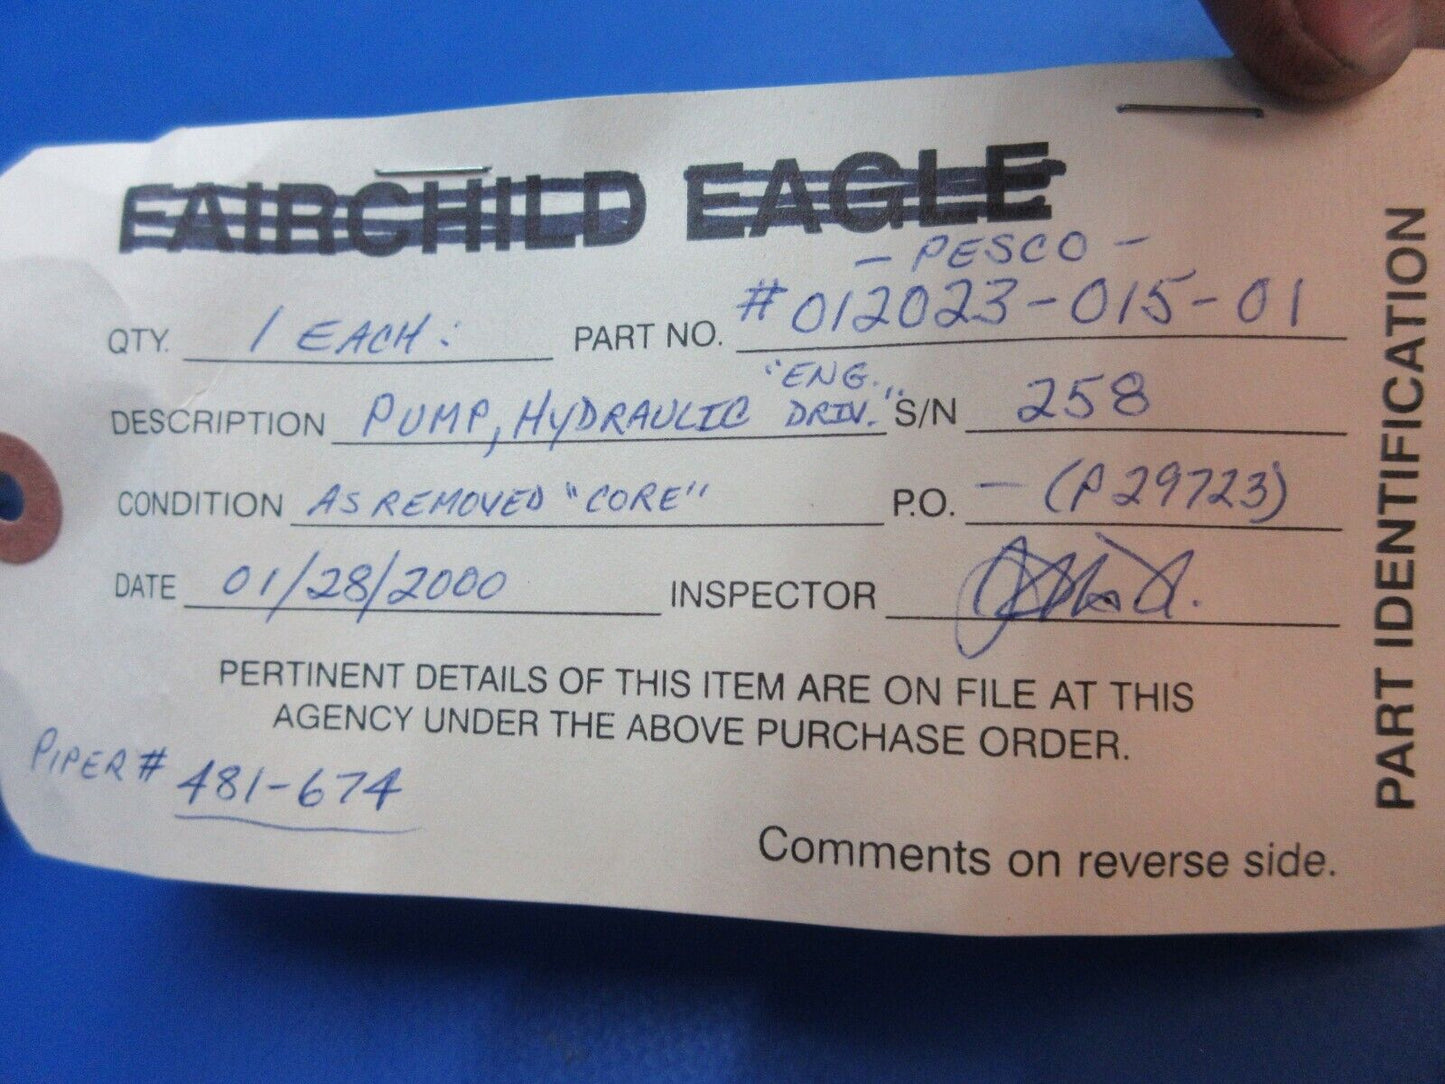 FAIRCHILD EAGLE
- PESCO -
QTY. 1 EACH: PART NO. #012023-015-01
DESCRIPTION PUMP, HYDRAULIC "ENG. DRIV." S/N 258
CONDITION AS REMOVED "CORE" P.O. - (P29723)
DATE 01/28/2000 INSPECTOR
PERTINENT DETAILS OF THIS ITEM ARE ON FILE AT THIS
AGENCY UNDER THE ABOVE PURCHASE ORDER.
PIPER # 481-674
Comments on reverse side.
PART IDENTIFICATION